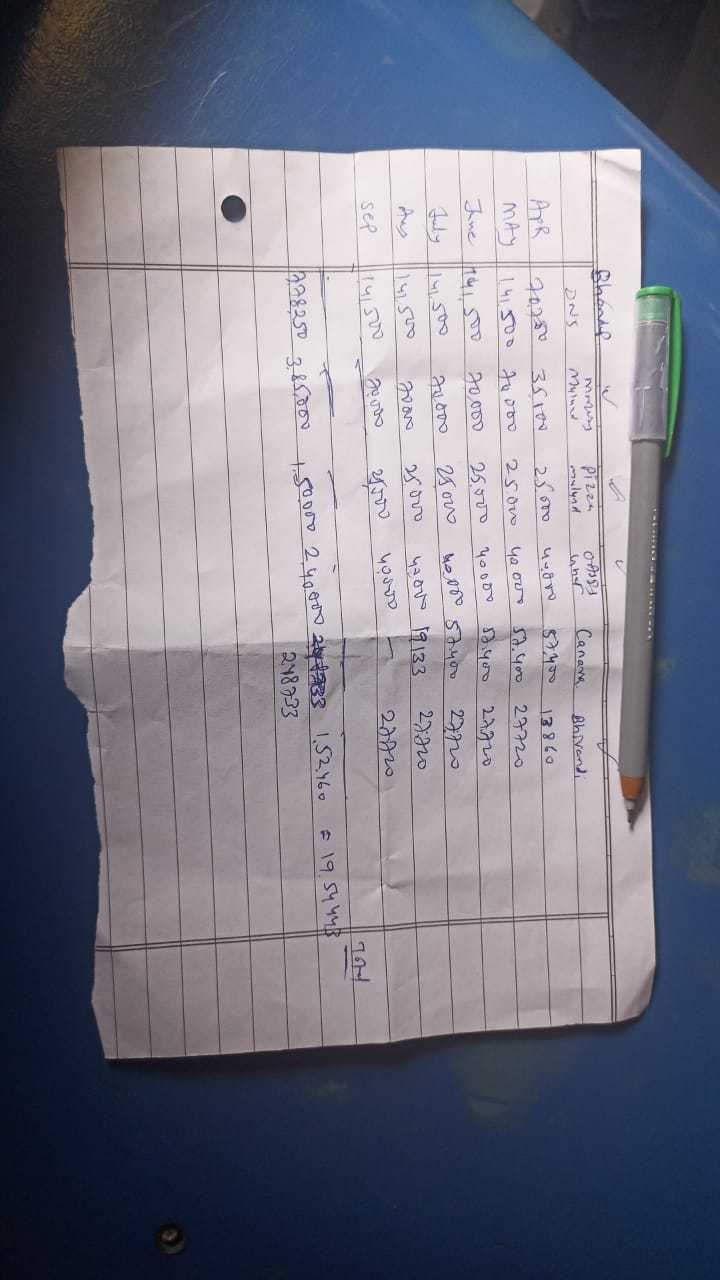 DNS Mulund Mulund Canara Bhiwandi
APR 70,750 35,000 25,000 40,000 57,400 13860
MAY 14,500 70,000 25,000 40,000 57,400 27720
June 14,500 70,000 25,000 40,000 57,400 27720
July 14,500 70,000 25,000 40,000 57,400 27,720
Aug 14,500 70,000 25,000 40,000 19133 27720
SEP 14,500 70,000 25,000 40,000 — 27720
Total
3,85,000 1,50,000 2,40,000 1,52,460 =
248733